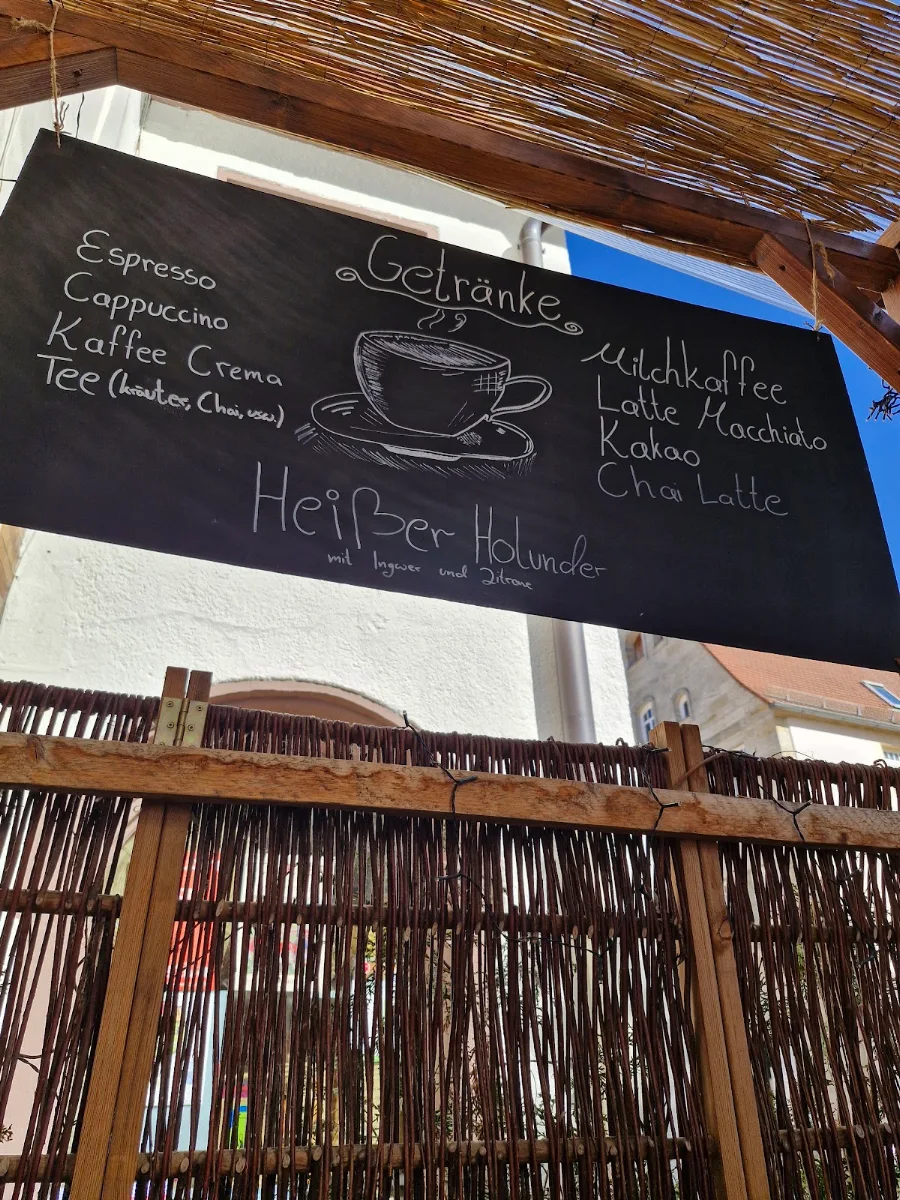 Getränke
Espresso
Cappuccino
Kaffee Crema
Tee (kräuter, Chai, usw.)
Milchkaffee
Latte Macchiato
Kakao
Chai Latte
Heißer Holunder
mit Ingwer und Zitrone